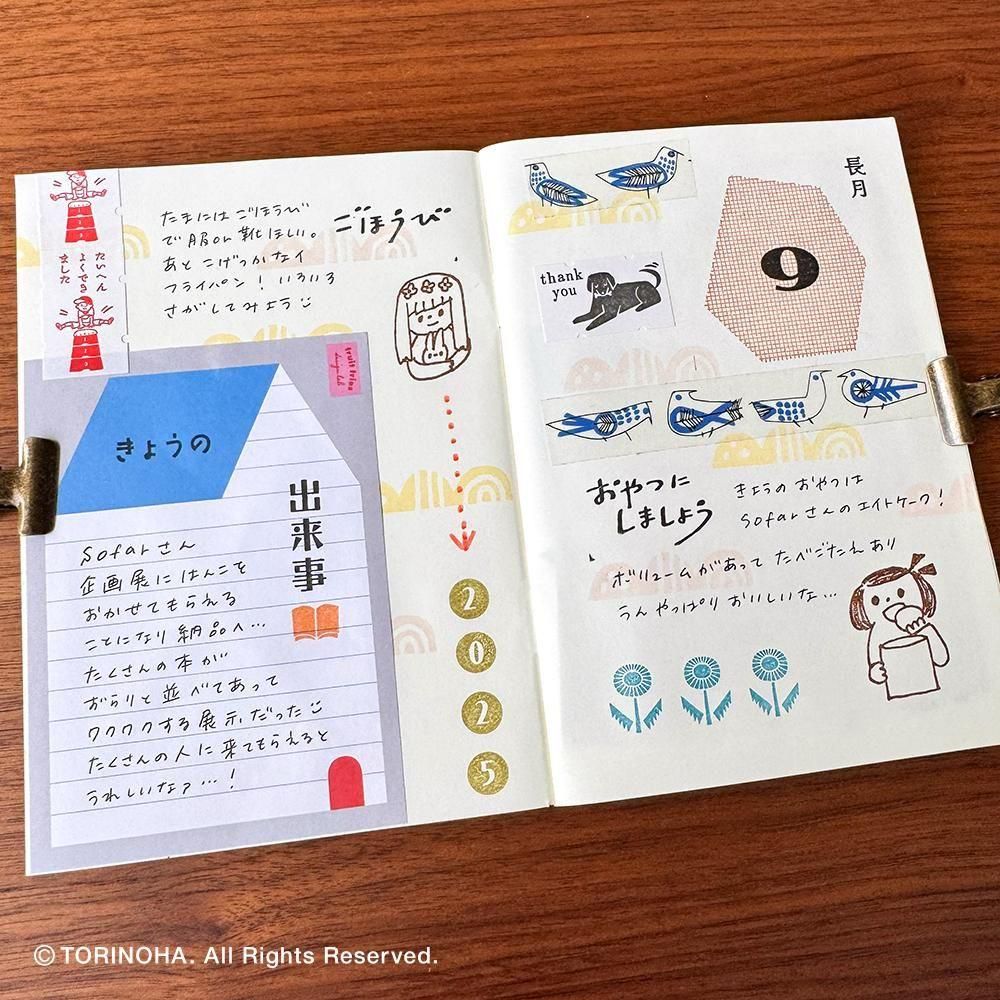 たいへん
よくできました
たまには ごほうび
で 服or 靴 ほしい。
あと こげつかない
フライパン! いろいろ
さがしてみよう
ごほうび
fruit friends
design lab
きょうの
出来事
Sofarさん
企画展に はんこを
おかせてもらえる
ことになり 納品へ…
たくさんの本が
ずらりと 並べてあって
ワクワクする 展示だった
たくさんの人に 来てもらえると
うれしいなァ…!
2
0
2
5
長月
9
thank
you
おやつに
しましょう
きょうの おやつは
Sofarさんのエイトケーク!
ボリュームがあって たべごたえ あり
うん やっぱり おいしいな…
© TORINOHA. All Rights Reserved.